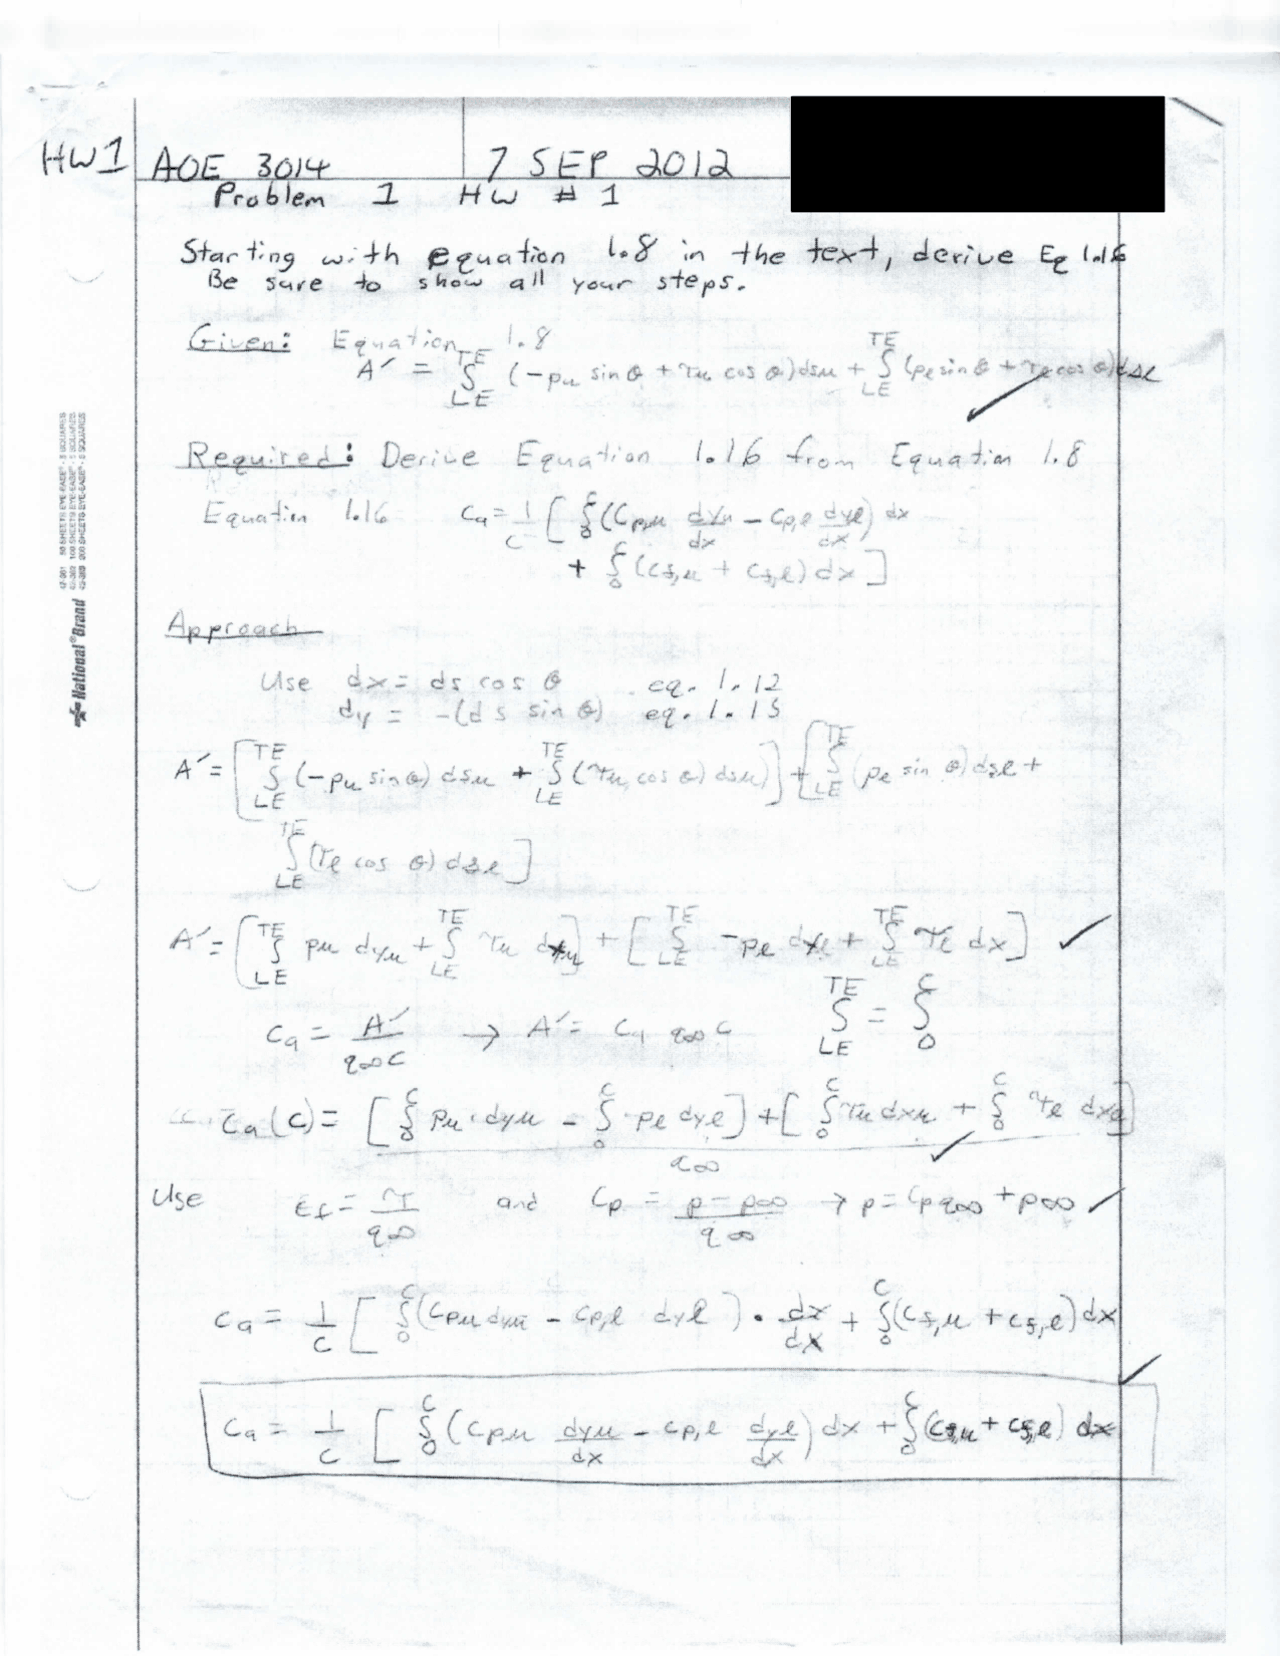 HW1 AOE 3014 7 SEP 2012
Problem 1 HW # 1
Starting with equation 1.8 in the text, derive Eq 1.16
Be sure to show all your steps.
Given: Equation 1.8
A′ = ∫_LE^TE (-pu sin θ + τu cos θ) dsu + ∫_LE^TE (pe sin θ + τe cos θ) dsl
Required: Derive Equation 1.16 from Equation 1.8
Equation 1.16 ca = 1/c [ ∫_0^c (Cp,u dyu/dx - Cp,l dyl/dx) dx
+ ∫_0^c (cf,u + cf,l) dx ]
Approach
Use dx = ds cos θ eq. 1.12
dy = -(ds sin θ) eq. 1.13
A′ = [ ∫_LE^TE (-pu sin θ) dsu + ∫_LE^TE (τu cos θ) dsu) ] + [ ∫_LE^TE (pe sin θ) dsl +
∫_LE^TE (τe cos θ) dsl ]
A′ = [ ∫_LE^TE pu dyu + ∫_LE^TE τu dxu ] + [ ∫_LE^TE -pe dyl + ∫_LE^TE τe dx ]
ca = A′/q∞c → A′ = ca q∞ c ∫_LE^TE = ∫_0^c
ca(c) = [ ∫_0^c pu · dyu - ∫_0^c pe dyl ] + [ ∫_0^c τu dxu + ∫_0^c τe dxl ] / q∞
Use cf = τ/q∞ and Cp = p - p∞/q∞ → p = Cp q∞ + p∞
ca = 1/c [ ∫_0^c (Cpu dyu - Cp,l dyl) · dx/dx + ∫_0^c (cf,u + cf,l) dx
ca = 1/c [ ∫_0^c (Cpu dyu/dx - cp,l dyl/dx) dx + ∫_0^c (cf,u + cf,l) dx
National® Brand